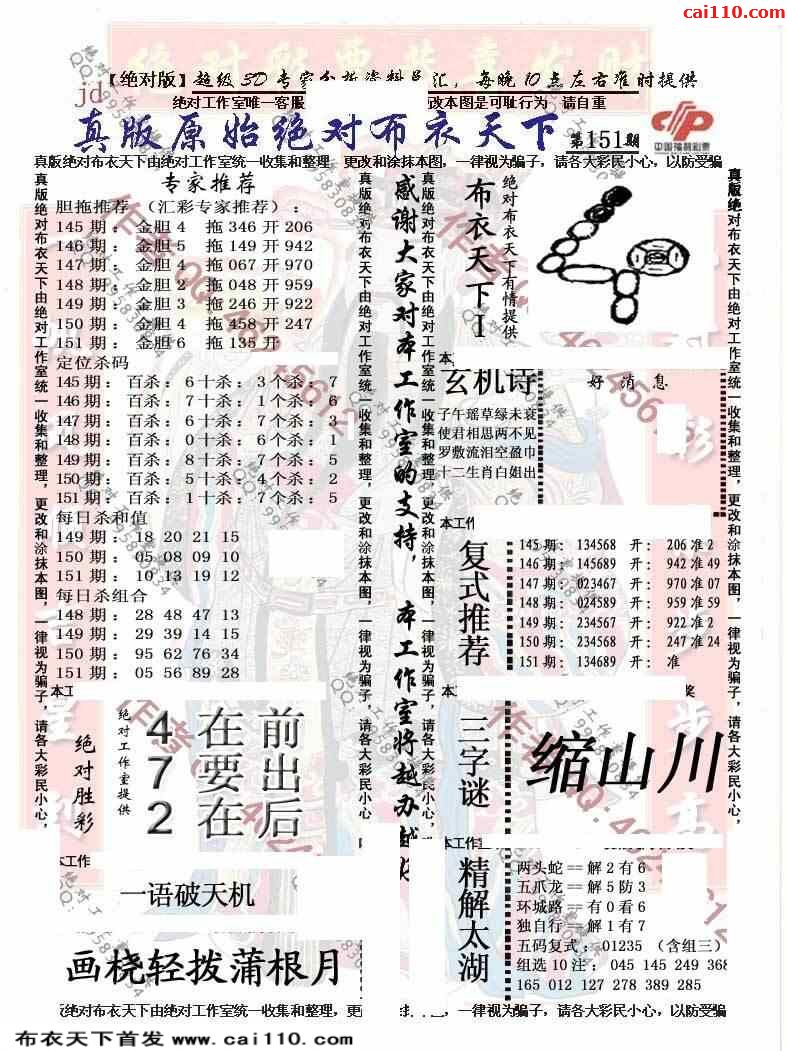 cai110.com
【绝对版】超级3D专家分析资料总汇，每晚10点左右准时提供
绝对工作室唯一客服
改本图是可耻行为 请自重
真版原始绝对布衣天下
第151期
中国福利彩票
真版绝对布衣天下由绝对工作室统一收集和整理 更改和涂抹本图，一律视为骗子，请各大彩民小心，以防受骗
真版绝对布衣天下由绝对工作室统一收集和整理，更改和涂抹本图，一律视为骗子，请各大彩民小心，
专家推荐
胆拖推荐 （汇彩专家推荐）：
145期：金胆4 拖346开206
146期：金胆5 拖149开942
147期：金胆4 拖067开970
148期：金胆2 拖048开959
149期：金胆3 拖246开922
150期：金胆4 拖458开247
151期：金胆6 拖135开
定位杀码
145期：百杀：6十杀：3个杀：7
146期：百杀：7十杀：1个杀：6
147期：百杀：6十杀：7个杀：3
148期：百杀：0十杀：6个杀：1
149期：百杀：8十杀：7个杀：5
150期：百杀：5十杀：4个杀：2
151期：百杀：1十杀：7个杀：5
每日杀和值
149期：18 20 21 15
150期：05 08 09 10
151期：10 13 19 12
每日杀组合
148期：28 48 47 13
149期：29 39 14 15
150期：95 62 76 34
151期：05 56 89 28
本工
真版绝对布衣天下由绝对工作室统一收集和整理，更改和涂抹本图，一律视为骗子，请各大彩民小心，
感谢大家对本工作室的支持，本工作室将越办越好
真版绝对布衣天下由绝对工作室统一收集和整理，更改和涂抹本图，一律视为骗子，请各大彩民小心，
布衣天下I
绝对布衣天下有情提供
本
玄机诗
子午瑶草绿未衰
使君相思两不见
罗敷流泪空盈巾
十二生肖白姐出
好消息
本工作
复式推荐
145期：134568 开：206准2
146期：145689 开：942准49
147期：023467 开：970准07
148期：024589 开：959准59
149期：234567 开：922准2
150期：234568 开：247准24
151期：134689 开： 准
本
奖
真版绝对布衣天下由绝对工作室统一收集和整理，更改和涂抹本图，一律视为骗子，请各大彩民小心，
绝对胜彩
绝对工作室提供
4在前
7要出
2在后
三字谜
缩山川
本工作
一语破天机
画桡轻拨蒲根月
本工作
精解太湖
两头蛇==解2有6
五爪龙==解5防3
环城路==有0看6
独自行==解1有7
五码复式：01235（含组三）
组选10注：045 145 249 368
165 012 127 278 389 285
绝对布衣天下由绝对工作室统一收集和整理，更
一律视为骗子，请各大彩民小心，以防受骗
布衣天下首发 www.cai110.com